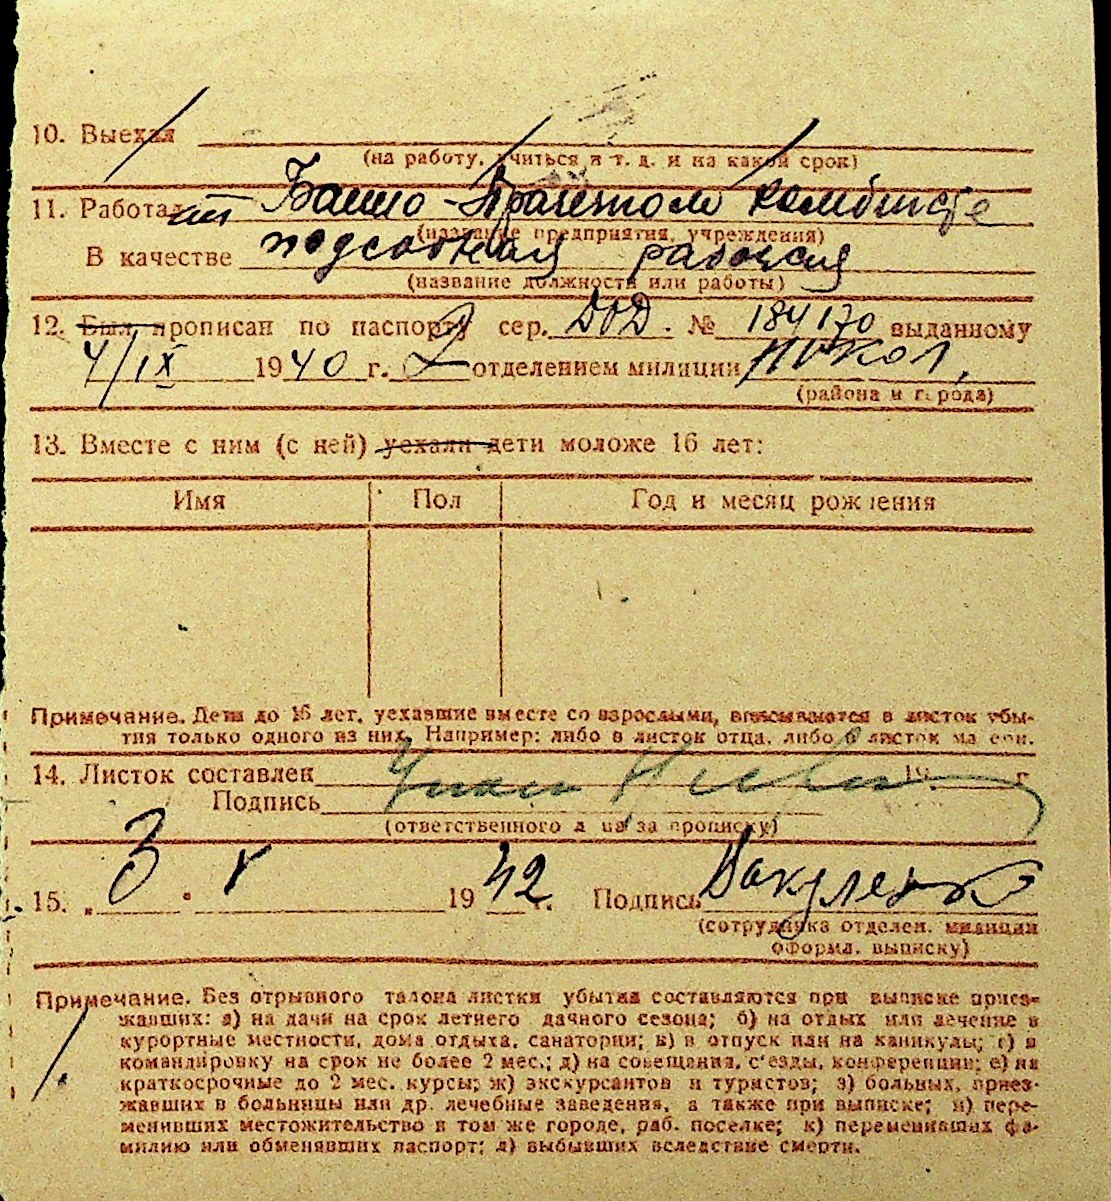 10. Выехал
(на работу, учиться и т. д. и на какой срок)
11. Работал Банно-Прачечном комбинате
(название предприятия, учреждения)
В качестве подсобная рабочая
(название должности или работы)
12. Был прописан по паспорту сер. ДОД. № 184170 выданному
4/IX 1940 г. 2 отделением милиции
(района и города)
13. Вместе с ним (с ней) уехали дети моложе 16 лет:
Имя Пол Год и месяц рождения
Примечание. Дети до 16 лет, уехавшие вместе со взрослыми, вписываются в листок убы-
тия только одного из них. Например: либо в листок отца, либо в листок матери.
14. Листок составлен 19 г
Подпись
(ответственного лица за прописку)
15. „3 " V 1942 г. Подпись Вакуленко
(сотрудника отделен. милиции
оформл. выписку)
Примечание. Без отрывного талона листки убытия составляются при выписке приез-
жавших: а) на дачи на срок летнего дачного сезона; б) на отдых или лечение в
курортные местности, дома отдыха, санатории; в) в отпуск или на каникулы; г) в
командировку на срок не более 2 мес.; д) на совещания, с'езды, конференции; е) на
краткосрочные до 2 мес. курсы; ж) экскурсантов и туристов; з) больных, приез-
жавших в больницы или др. лечебные заведения, а также при выписке; и) пере-
менивших местожительство в том же городе, раб. поселке; к) переменивших фа-
милию или обменявших паспорт; л) выбывших вследствие смерти.